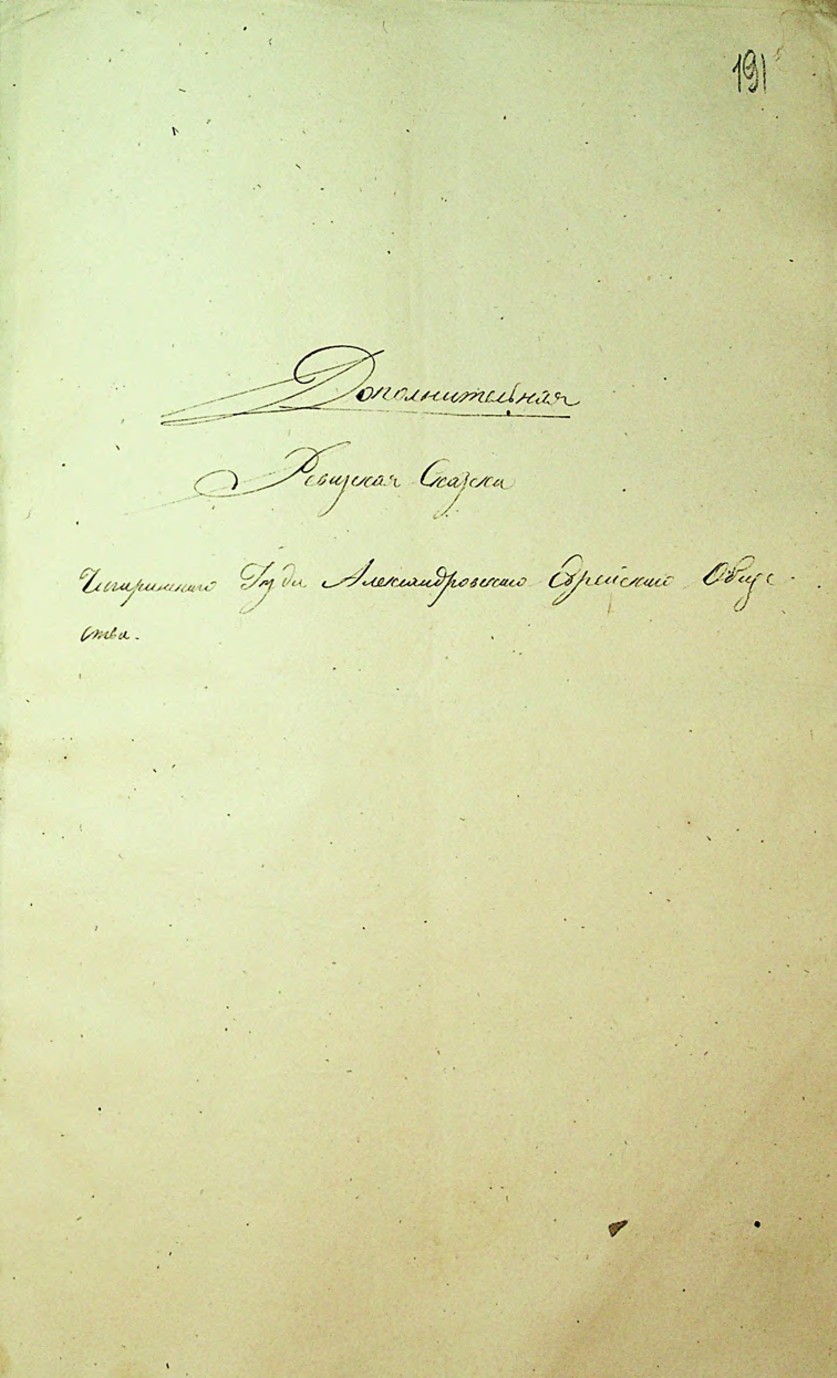 191
Дополнительная
Ревизская Сказка
Чигиринского Александровского Еврейского Общес
ства.